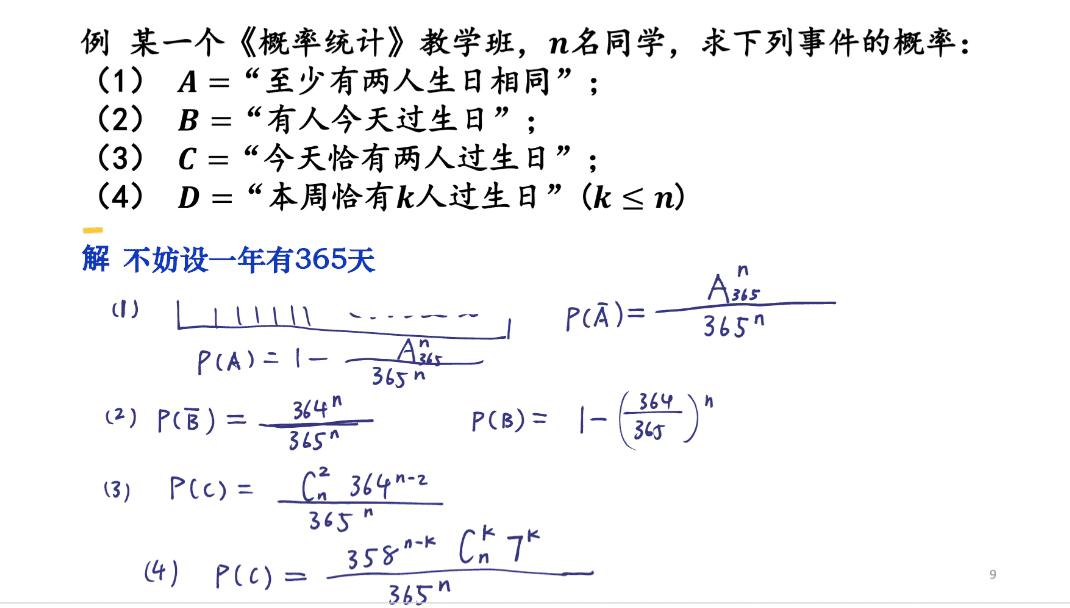 例 某一个《概率统计》教学班，n名同学，求下列事件的概率：
（1） A =“至少有两人生日相同”；
（2） B =“有人今天过生日”；
（3） C =“今天恰有两人过生日”；
（4） D =“本周恰有k人过生日”(k ≤ n)
解 不妨设一年有365天
(1) P(Ā) = A_{365}^{n} / 365^n
P(A) = 1 - A_{365}^{n} / 365^n
(2) P(B̄) = 364^n / 365^n P(B) = 1 - (364/365)^n
(3) P(C) = C_n^2 364^{n-2} / 365^n
(4) P(C) = 358^{n-k} C_n^k 7^k / 365^n
9